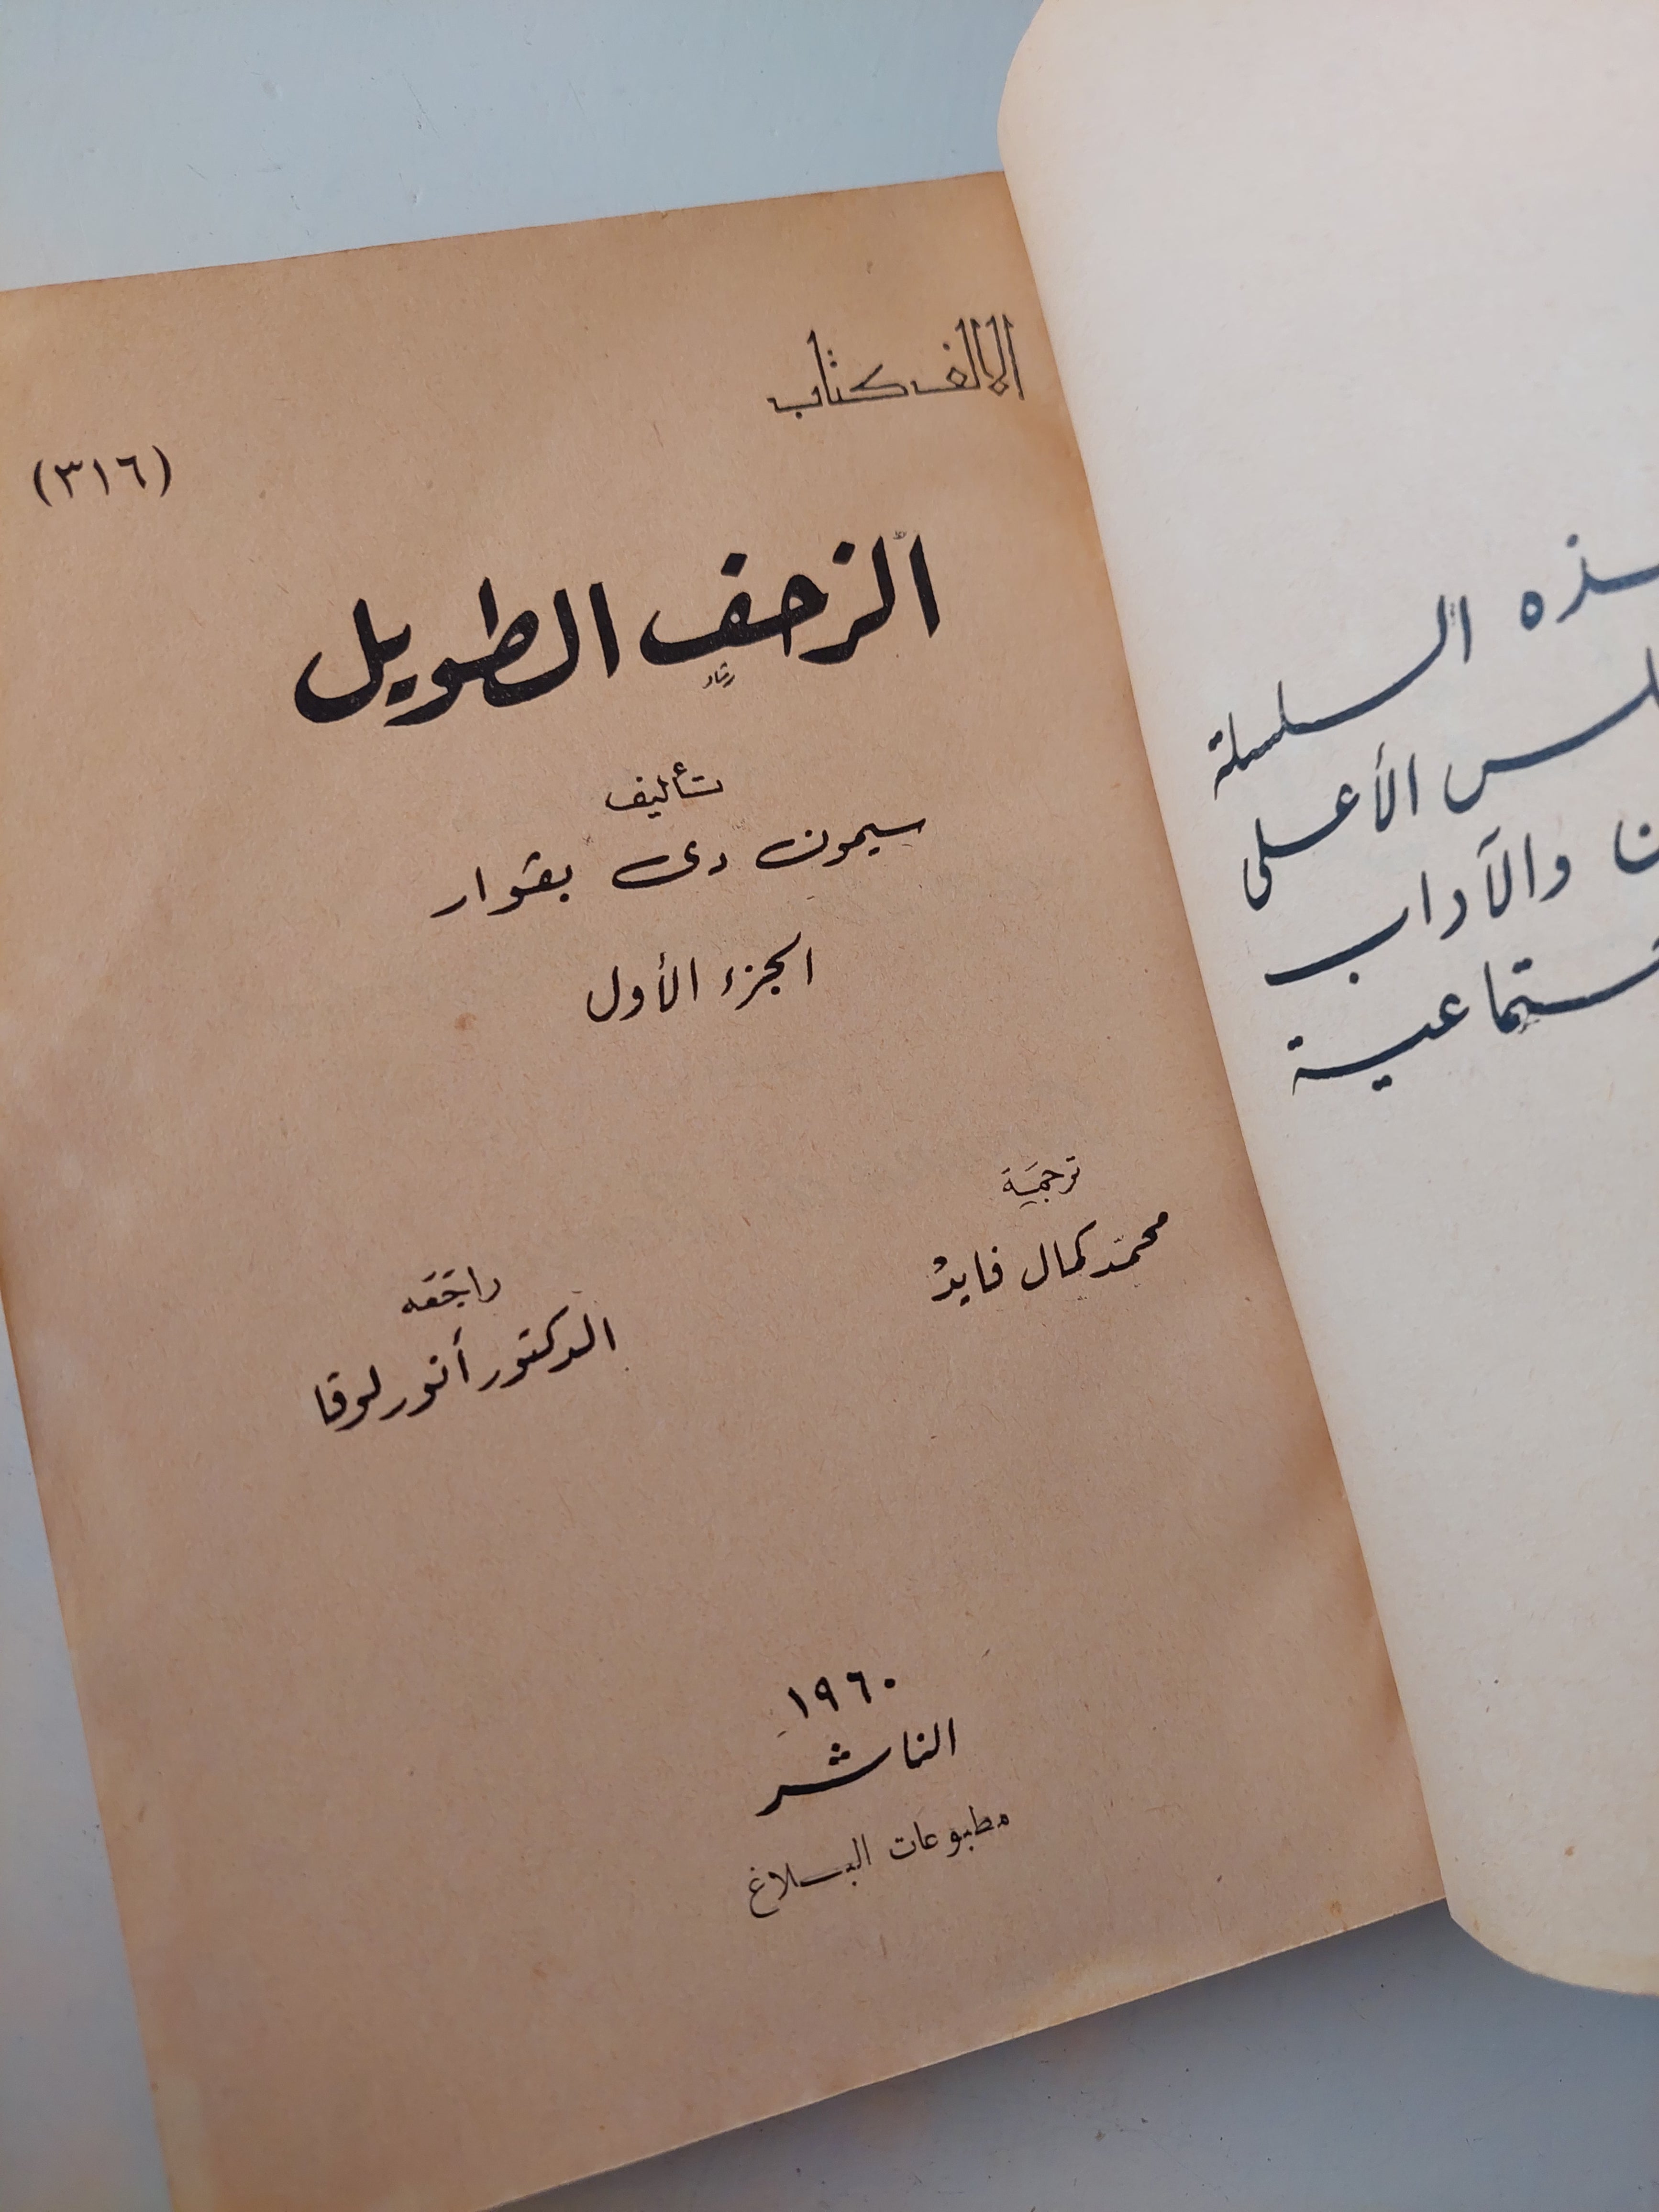 الألف كتاب
(٣١٦)
الزحف الطويل
تأليف
سيمون دى بقوار
الجزء الأول
ترجمة
محمد كمال فايد
راجعه
الدكتور أنور لوقا
١٩٦٠
الناشر
مطبوعات البلاغ
ـذه السلسلة
ـلس الأعلى
ن والآداب
ـتماعية